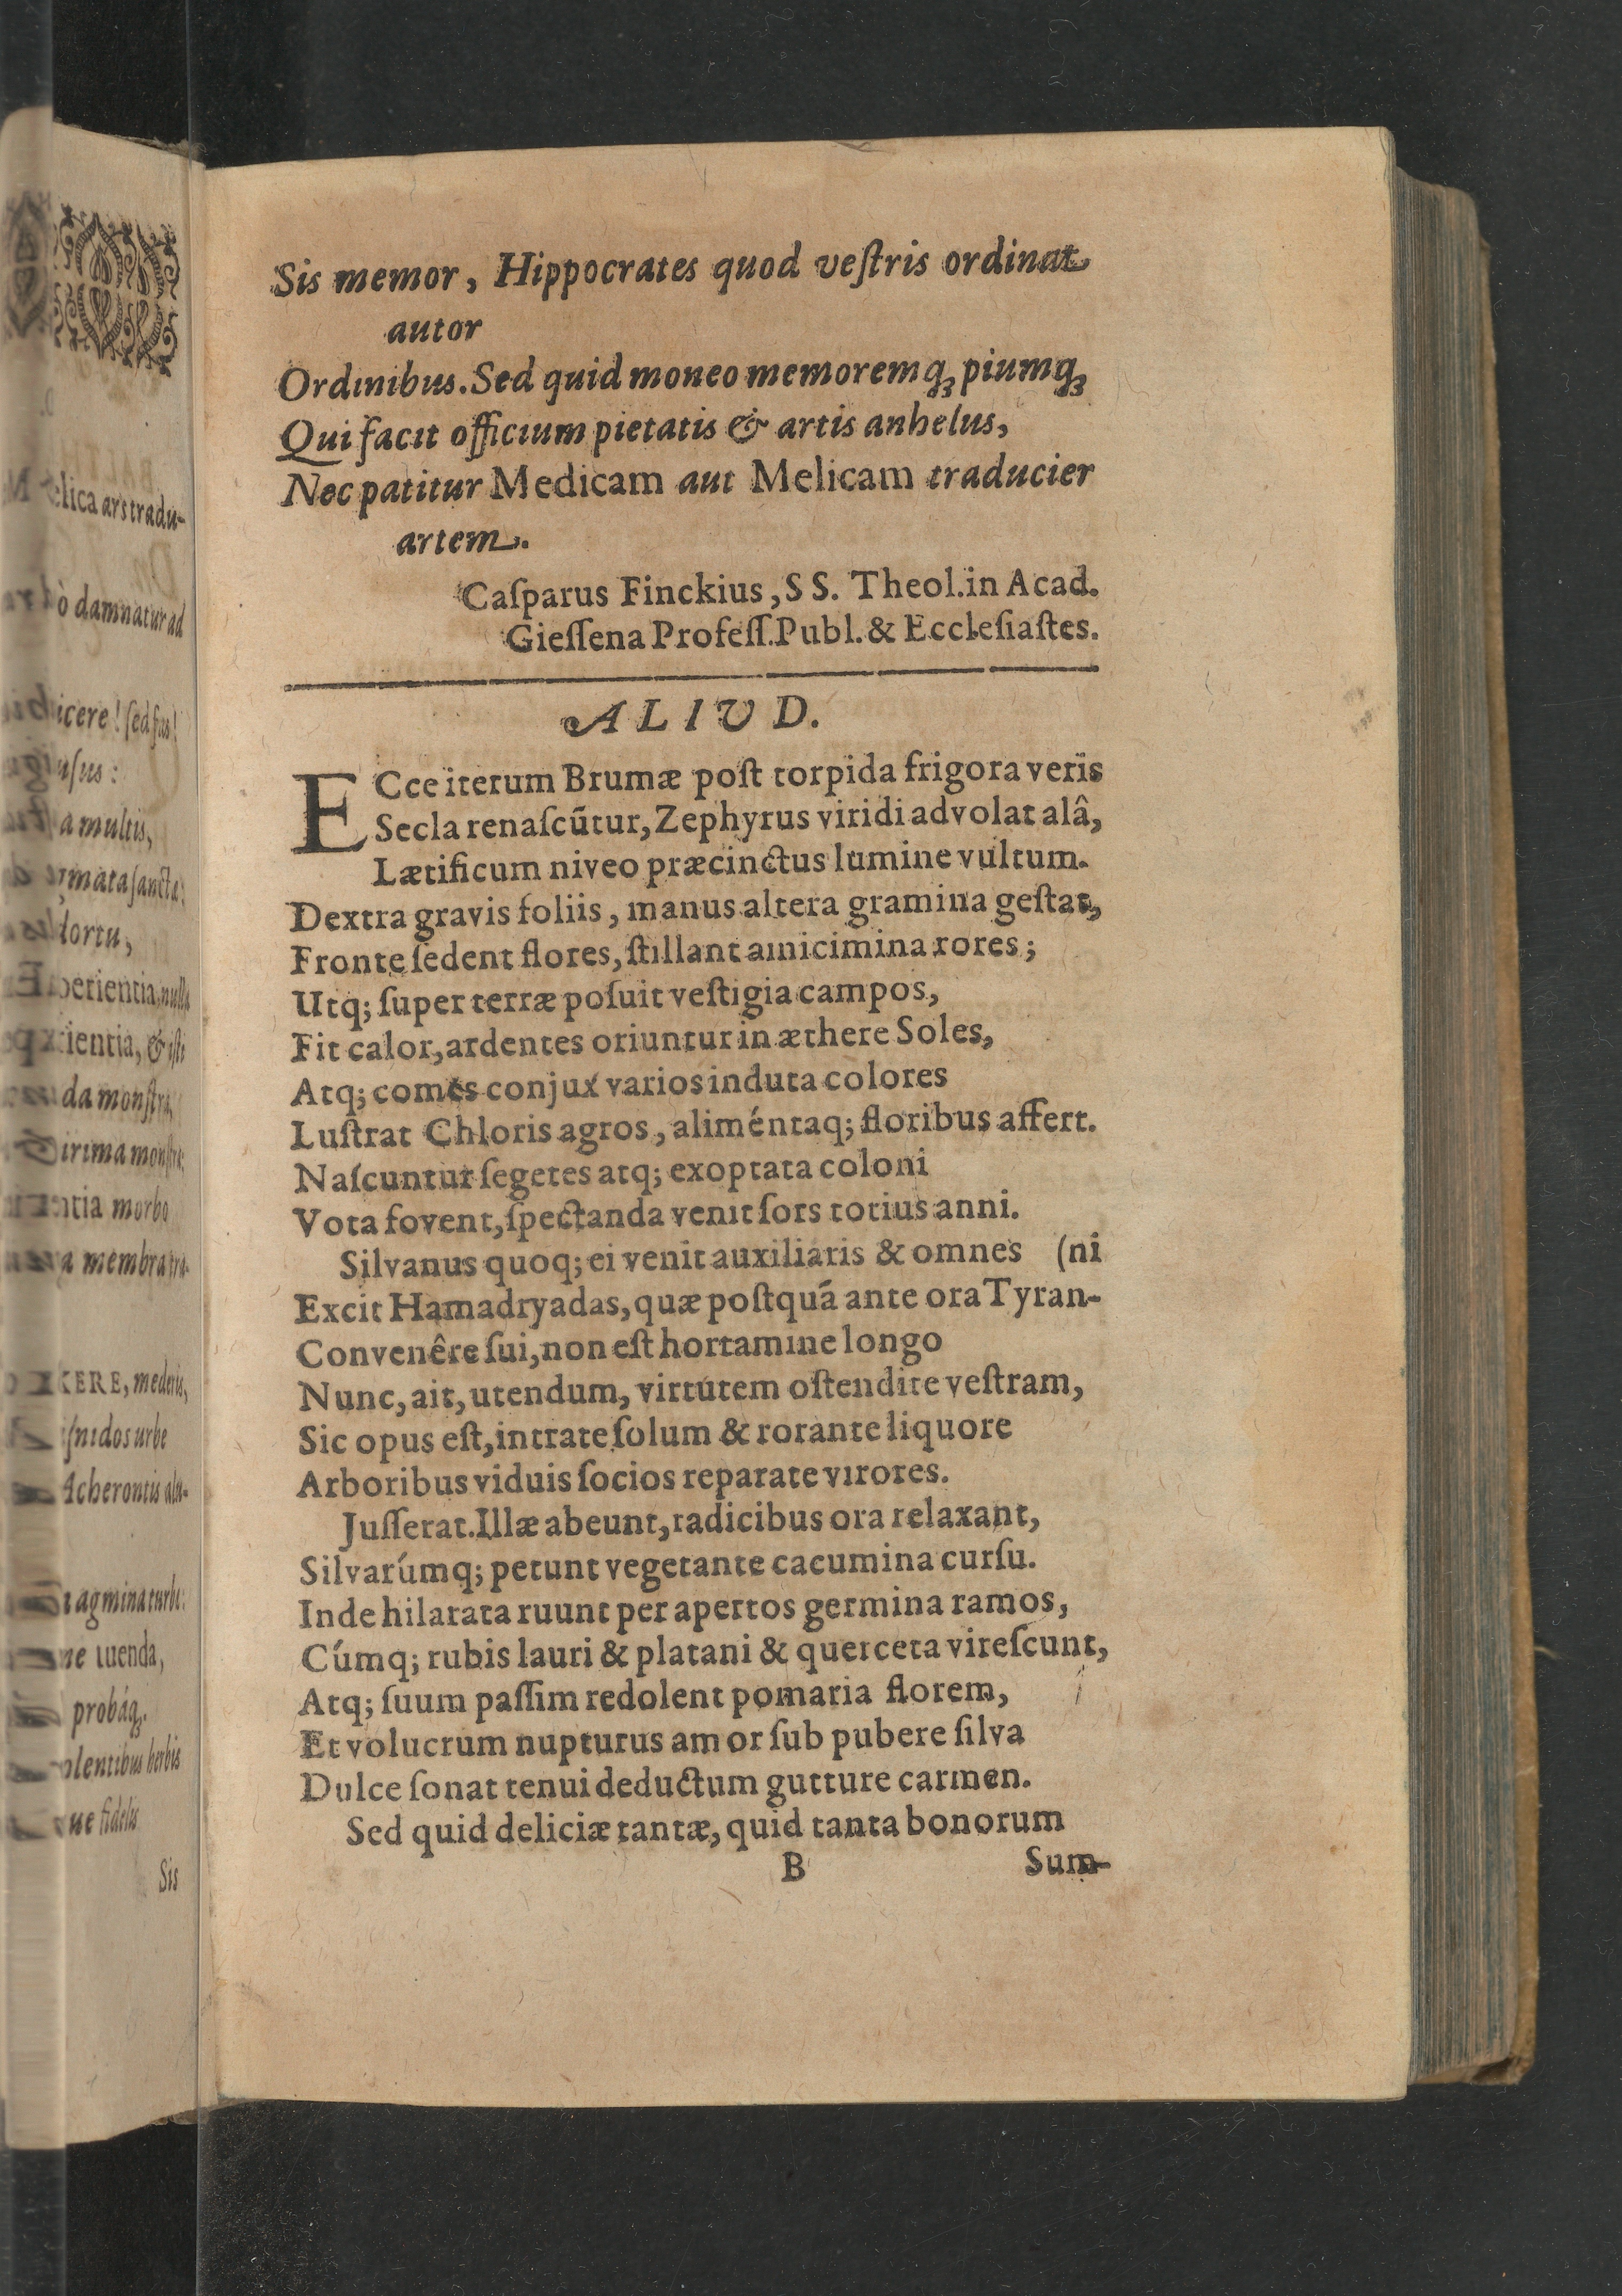 Sis memor, Hippocrates quod veſtris ordinat
autor
Ordinibus. Sed quid moneo memoremq́ꝫ piumq́ꝫ
Qui facit officium pietatis & artis anhelus,
Nec patitur Medicam aut Melicam traducier
artem.
Caſparus Finckius, SS. Theol. in Acad.
Gieſſena Profeſſ. Publ. & Eccleſiaſtes.
ALIUD.
ECce iterum Brumæ poſt torpida frigora veris
Secla renaſcūtur, Zephyrus viridi advolat alâ,
Lætificum niveo præcinctus lumine vultum.
Dextra gravis foliis, manus altera gramina geſtat,
Fronte ſedent flores, ſtillant amicimina rores;
Utq; ſuper terræ poſuit veſtigia campos,
Fit calor, ardentes oriuntur in æthere Soles,
Atq; comes conjux varios induta colores
Luſtrat Chloris agros, aliméntaq; floribus affert.
Naſcuntur ſegetes atq; exoptata coloni
Vota fovent, ſpectanda venit ſors totius anni.
Silvanus quoq; ei venit auxiliaris & omnes (ni
Excit Hamadryadas, quæ poſtquã ante ora Tyran-
Convenêre ſui, non eſt hortamine longo
Nunc, ait, utendum, virtutem oſtendite veſtram,
Sic opus eſt, intrate ſolum & rorante liquore
Arboribus viduis ſocios reparate virores.
Juſſerat. Illæ abeunt, radicibus ora relaxant,
Silvarúmq; petunt vegetante cacumina curſu.
Inde hilarata ruunt per apertos germina ramos,
Cúmq; rubis lauri & platani & querceta vireſcunt,
Atq; ſuum paſſim redolent pomaria florem,
Et volucrum nupturus amor ſub pubere ſilva
Dulce ſonat tenui deductum gutture carmen.
Sed quid deliciæ tantæ, quid tanta bonorum
B Sum-
elica ars tradu-
ò damnatur ad
icere! ſed fas!
uſus:
a multis,
ortu,
perientia nulla
rientia, & iſti
da monſtra,
ntia morbo
a membra tra-
KERE, mederis,
ſnidos urbe
Acherontis alu-
agmina turbe:
ne tuenda,
probáq́ꝫ.
olentibus herbis
ue fidelis
Sis